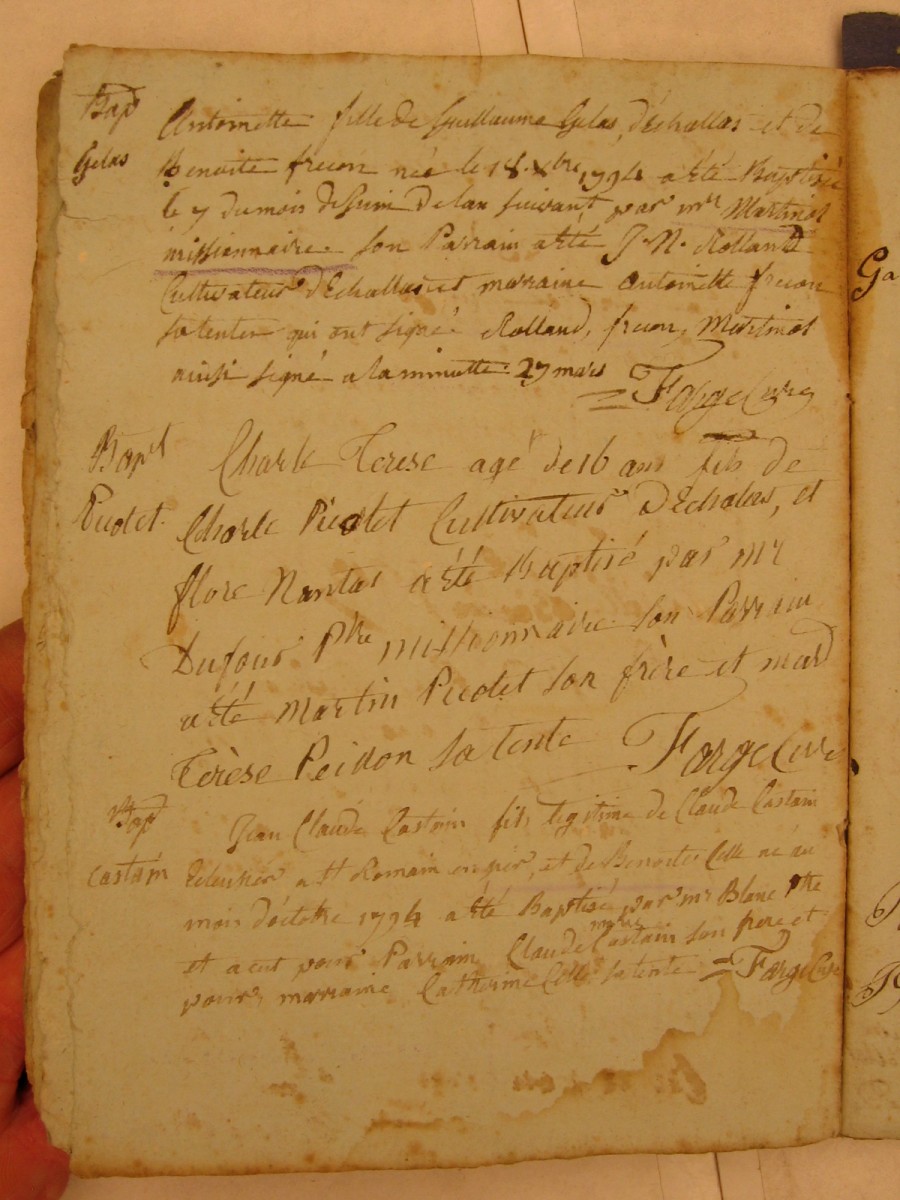 Bap
Gelas
Antoinette fille de Guillaume Gelas, d'échallas et de
Benoite frecon née le 18. Xbre 1794 a été Baptisée
le 7 du mois de juin de lan suivant par mr Martinot
missionnaire. son Parrain a été J. N. Rolland
Cultivateur d'Echallas et marraine Antoinette frecon
sa tente qui ont signé Rolland, frecon, Martinot
ainsi signé a la minutte. 27 mars
Farge Curé
Bapt
Picotet.
Charle Terese agé de 16 ans fils de
Charle Picotet Cultivateur d'Echalas, et
flore Nantas a été Baptisé par mr
Dufour Ptre missionnaire son Parrain
a été Martin Picotet son frère et mard
Terèse Peillon sa tente Farge Curé
Bap
Castain
Jean Claude Castain fils legitime de Claude Castain
a St Romain en gier, et de Benoite Celle né au
mois d'éctobre 1794 a été Baptisé par mr Blanc Ptre
et a eut pour Parrain Claude Castain son frere et
pour marraine Catherine Celle sa tente = Farge Curé
Ga